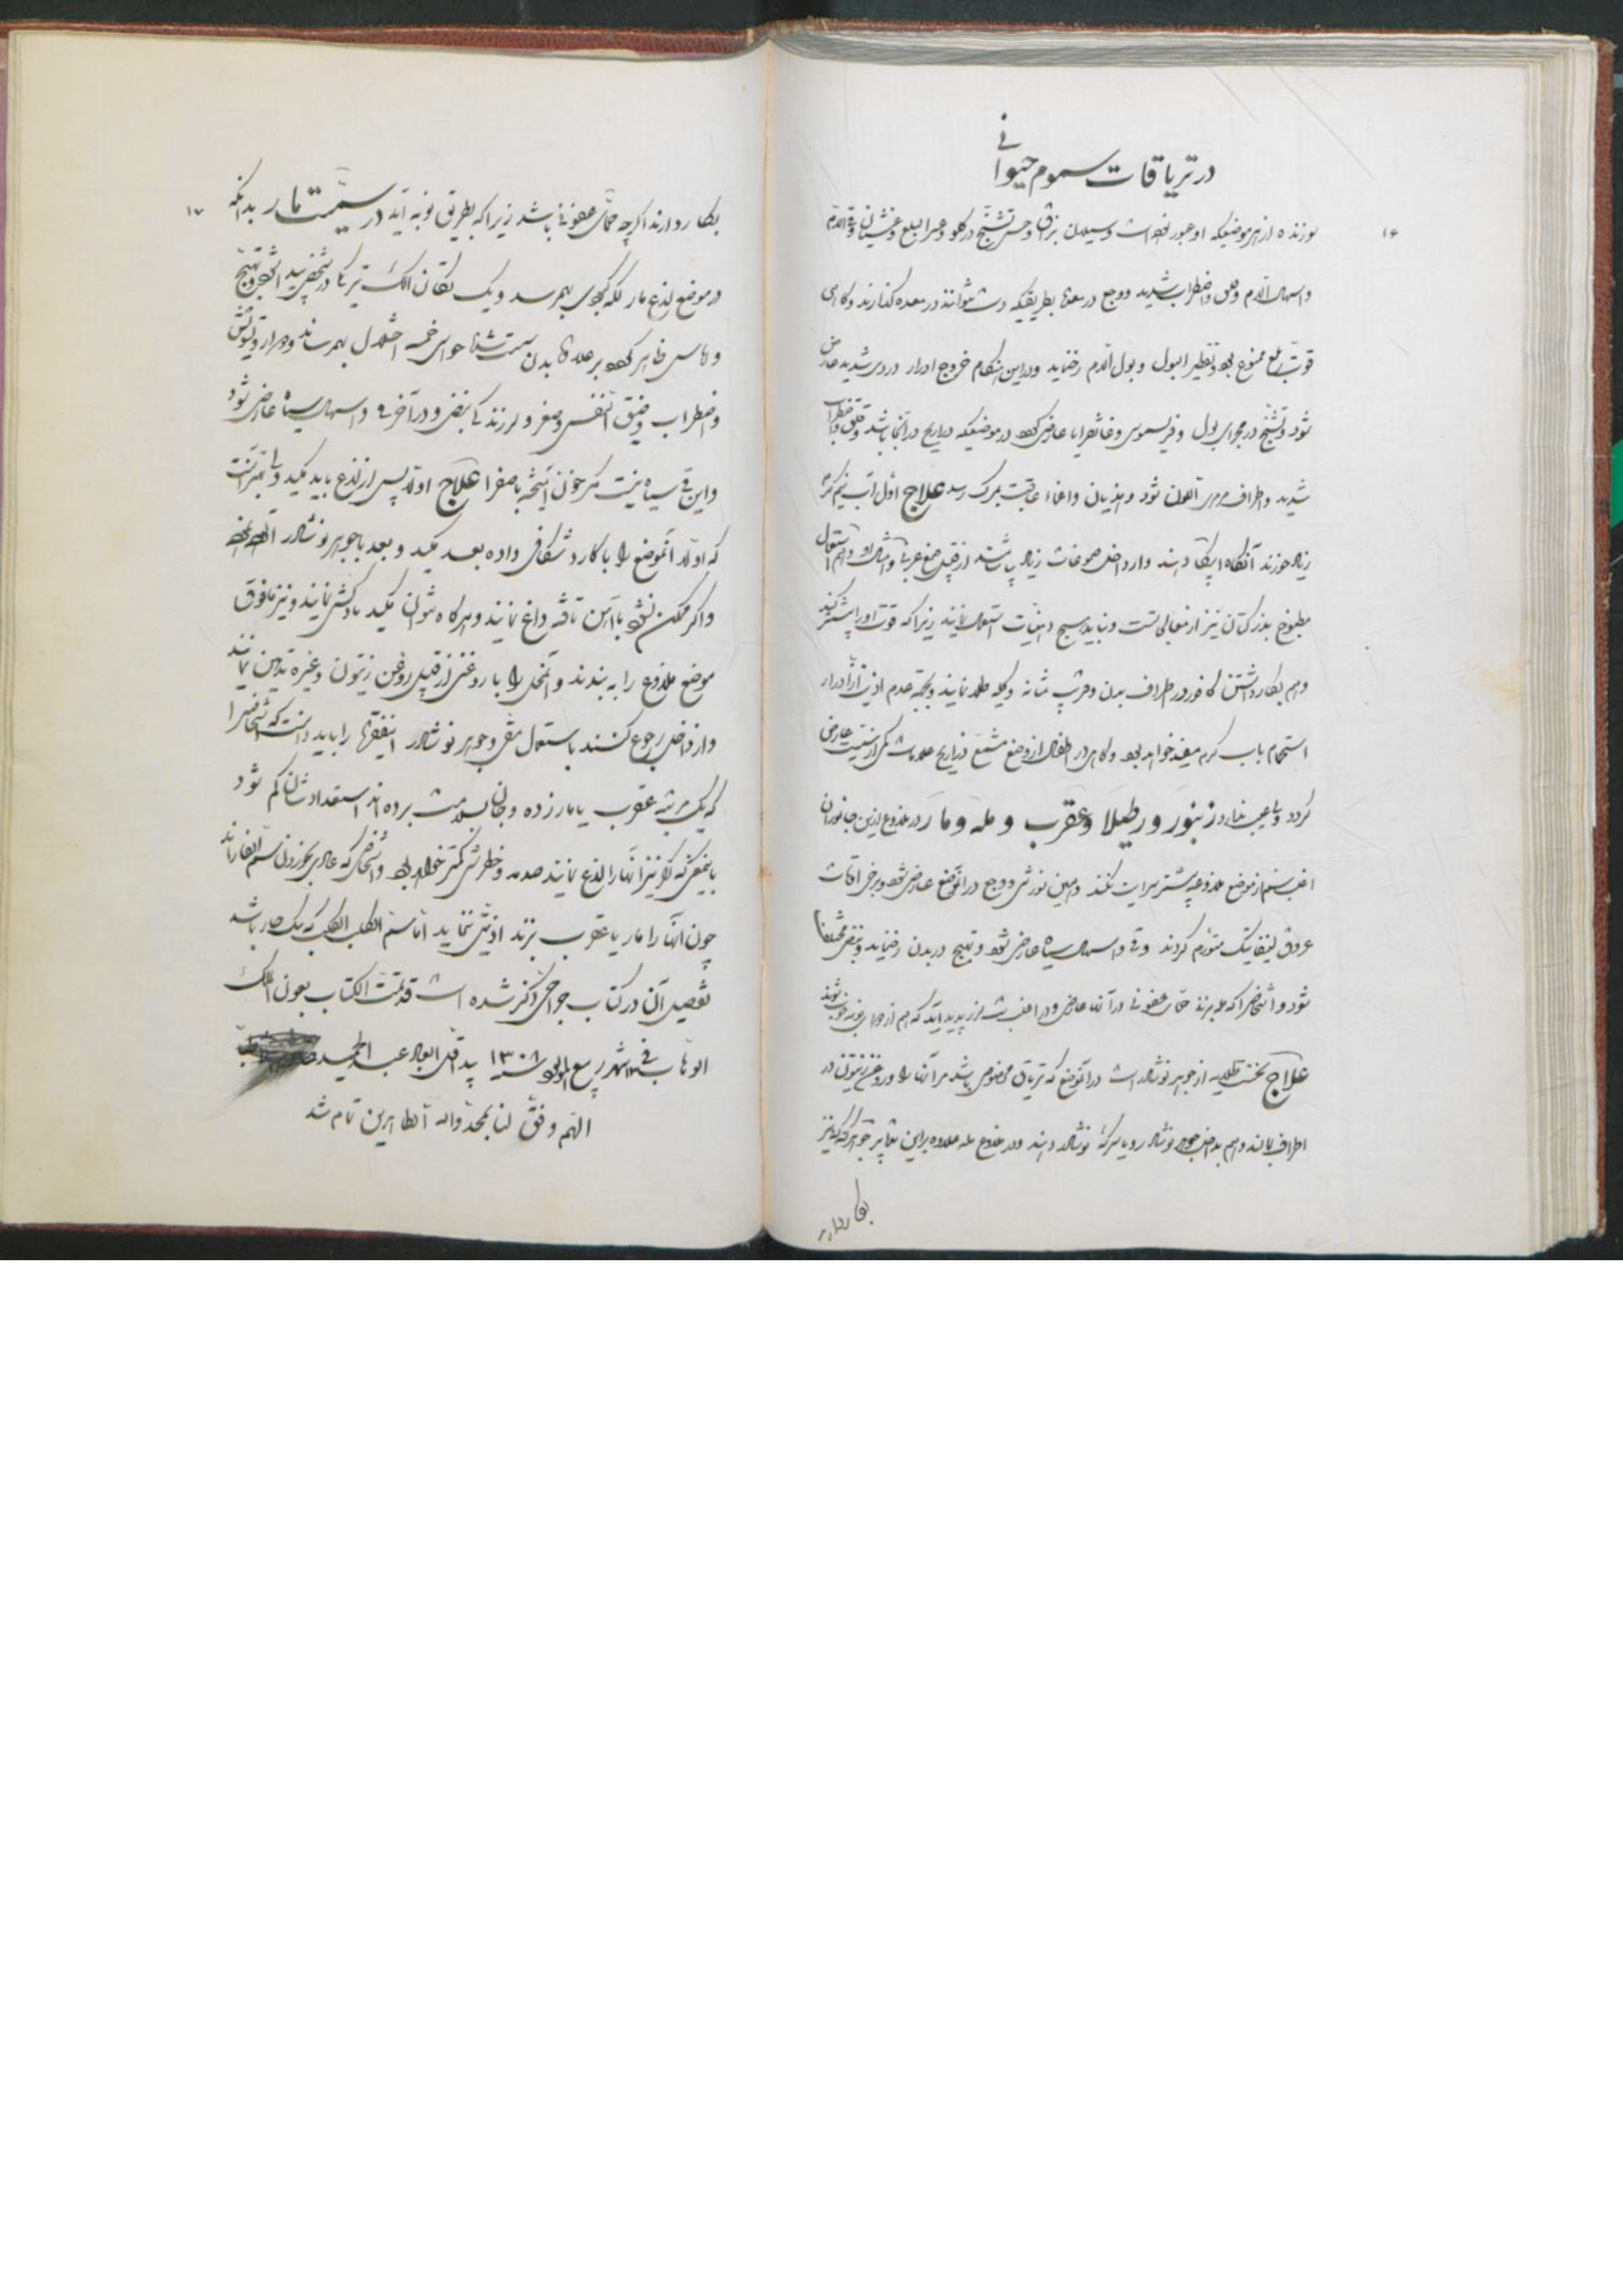 در تریاقات سموم حیوانی
۱۶
سوزنده از هر موضعیکه او عبور نموده است و سیلان بزاق و حس تشنج در گلو و عسر البلع و غشیان و قی الدم
و اسهال الدم و قلق و اضطراب شدید و وجع در معدها بطریقیکه دست نتوانند در معده گذارند و گاهی
قوت بلع ممنوع بوده و تقطیر البول و بول الدم رخ نماید و در این هنگام خروج ادرار دردی شدید عارض
شود و تشنج در مجرای بول و فریسموس و غانغرایا عارض گردد در موضعیکه ذراریح در آنجا باشد و قلق و اضطراب
شدید و اطراف مرمری اللون شود و هذیان و اغماء عاقبت بمرگ رسد علاج اول آب نیم گرم
زیاد خورند آنگاه اپیکا دهند و از داخل صموغات زیاد بیاشامند از قبیل صمغ عربی و امثال او و هم استعمال
مطبوخ بذر کتان نیز از معالجاتست و نباید هیچ دهنیات استعمال نمایند زیرا که قوت او را بیشتر کند
و هم بکار داشتن کافور در اطراف بدن و قرب مثانه و کلیه طلا نمایند و بجهة عدم اذیت از ادرار
استحمام باب گرم مفید خواهد بود و گاهی در اطفال از وضع مشمع ذراریح علامات کمی از سمیت عارض
گردد ولی عیب ندارد زنبور و رطیلا و عقرب و مله و مار در ملدوع از این جانوران
اغلب سم از موضع ملدوغه بیشتر سرایت نکند و همین سوزش و وجع در آنموضع عارض شود و برخی اوقات
عروق لینفاتیک متورم گردند و قی و اسهال سیاه عارض شود و تهیج در بدن رخ نماید و نبض مختلف
شود و اشخاصی را که مله بزند حمای عفونی در آنها عارض و در اغلب تب لرز پدید آید که هم از دوای نوبه خوب شوند
علاج نخست طلایه از جوهر نوشادر است در آنموضع که تریاق مخصوص باشد مر آنها را و روغن زیتون در
اطراف بمالند و هم بداخل جوهر نوشادر و یا سرکهٔ نوشادر دهند و در ملدوع مله علاوه بر این تدابیر جوهر گنه گنه نیز
بکار دارند
۱۷
بکار دارند اگر چه حمای عفونی باشد زیرا که بطریق نوبه آید در سمیت مار بدانکه
در موضع لدغ مار لکه کبودی بهمرسد و
و آماس ظاهر گردد بر علاوه بدن سست شود حواس خمسه اختلال بهمرساند و دوار و تشویش
و اضطراب و ضیق النفس و صغر و لرزندگی نبض و در آخر قی و اسهال سیاه عارض شود
و این قی سیاه نیست مگر خون آمیخته با صفرا علاج اولا پس از لدغ باید مکید ولی بهتر آنست
که اولا آنموضع را با کارد شکافی داده بعد مکید و بعد با جوهر نوشادر آلوده نمود
و اگر ممکن نشود با آهن تافته داغ نمایند و هرگاه نتوان مکید بادکش نمایند و نیز مافوق
موضع ملدوغ را به بندند و آنمحل را با روغنی از قبیل روغن زیتون و غیره تدهین نمایند
و از داخل رجوع کنند باستعمال مقی و جوهر نوشادر اینفقره را باید دانست که اشخاصیرا
که یک مرتبه عقرب یا مار زده و جان بسلامت برده اند استعدادشان کم شود
باینمعنی که اگر نیز آنها را لدغ نمایند صدمه و خطرش کمتر خواهد بود و اشخاصی که عادی بخوردن سم الفار اند
چون آنها را مار یا عقرب بزند اذیتی ننماید اما سم الکلب الکلب که سگ هار باشد
تفصیل آن در کتاب جراحی ذکر شده است قد تمت الکتاب بعون الملک
الوهاب فی شهر ربیع المولود سنه ۱۳۰۸ ید اقل العباد عبد الحمید
اللهم وفق لنا بمحمد و اله الطاهرین تمام شد